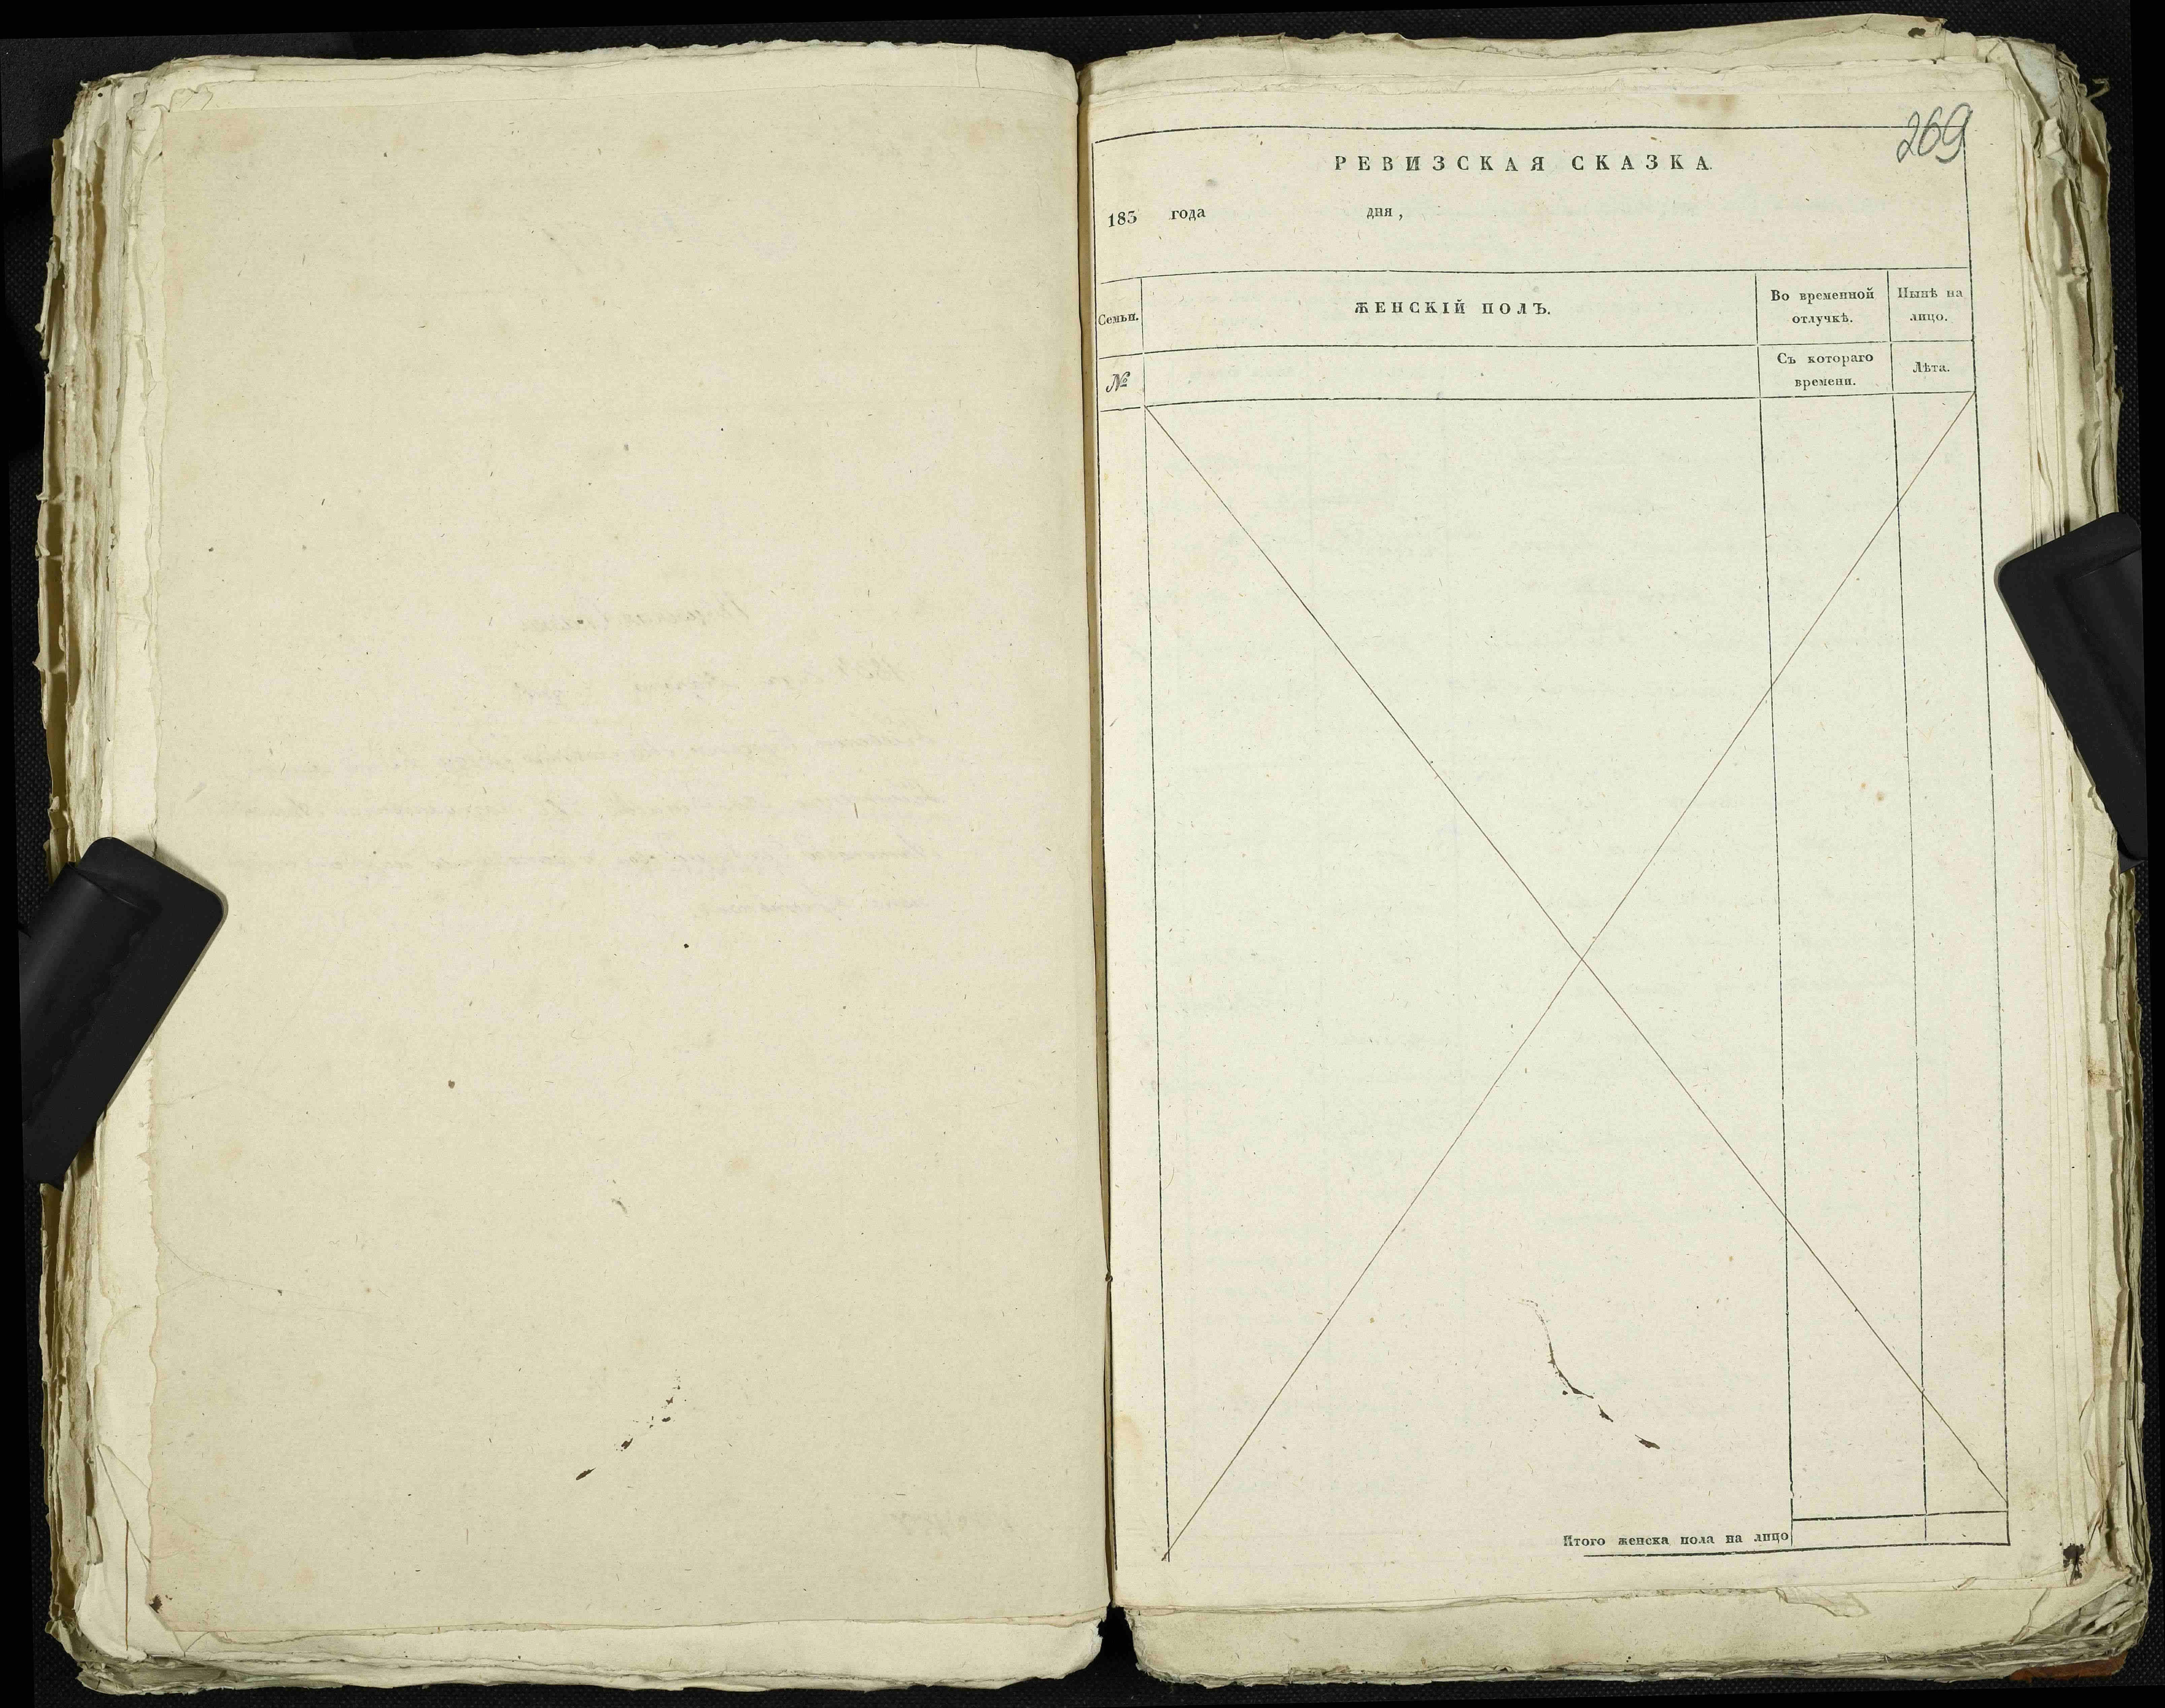 269
РЕВИЗСКАЯ СКАЗКА.
183 года дня,
Семьи.
ЖЕНСКІЙ ПОЛЪ.
Во временной отлучкѣ.
Нынѣ на лицо.
№
Съ котораго времени.
Лѣта.
Итого женска пола на лицо